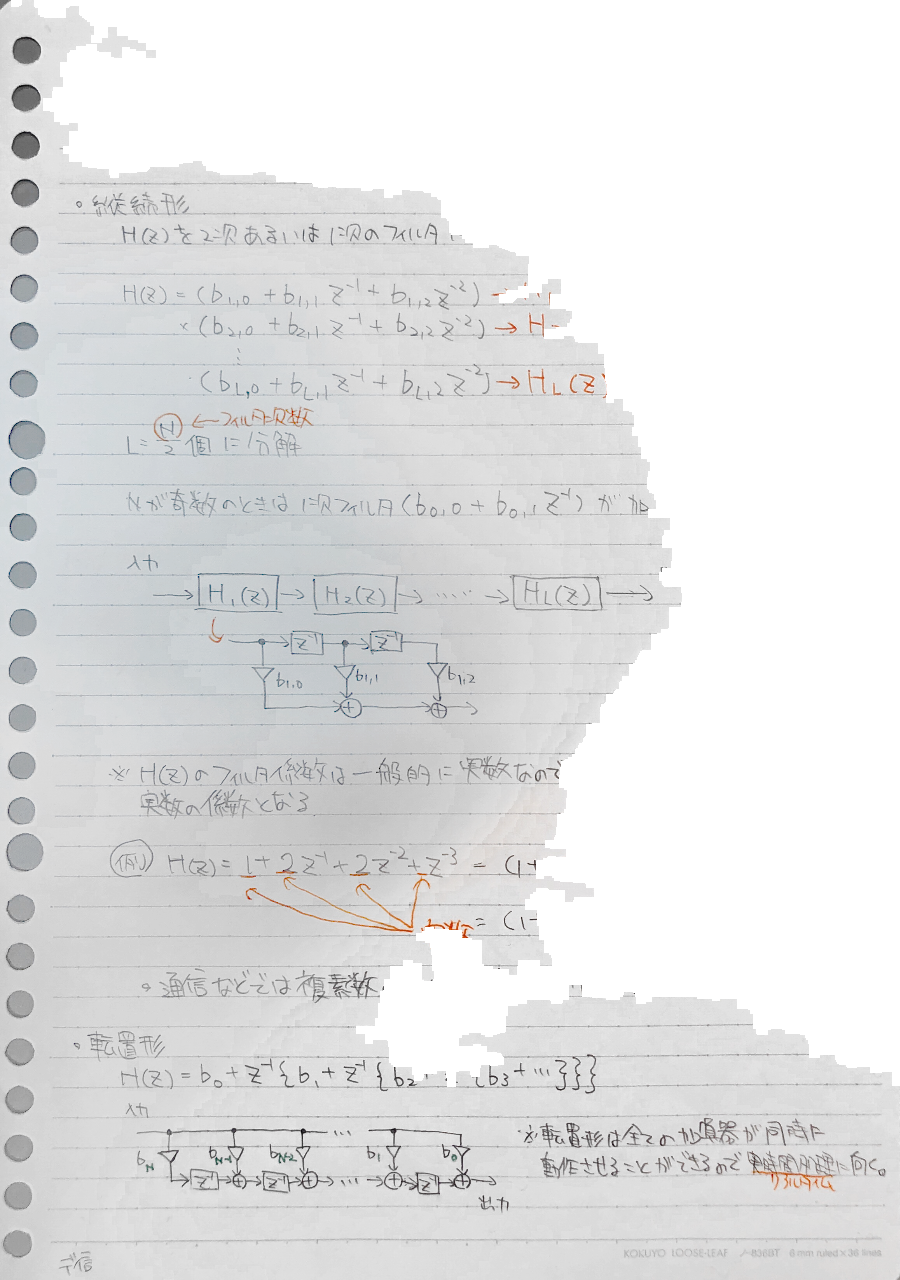 。縦続形
H(z)を2次あるいは1次のフィルタ
H(z) = (b1,0 + b1,1 z^-1 + b1,2 z^-2) →
× (b2,0 + b2,1 z^-1 + b2,2 z^-2) → H
⋮
(bL,0 + bL,1 z^-1 + bL,2 z^-2) → HL(z)
←フィルタ次数
L = N/2 個に分解
Nが奇数のときは1次フィルタ(b0,0 + b0,1 z^-1)が
入力
→ H1(z) → H2(z) → ‥‥ → HL(z) →
z^-1 z^-1
b1,0 b1,1 b1,2
※ H(z)のフィルタ係数は一般的に実数なので
実数の係数となる
例 H(z) = 1 + 2z^-1 + 2z^-2 + z^-3 = (1+
= (1-
。通信などでは複素数
。転置形
H(z) = b0 + z^-1{b1 + z^-1{b2 {b3 + …}}}
入力
bN bN-1 bN-2 … b1 b0
z^-1 z^-1 … z^-1
出力
※転置形は全ての加算器が同時に
動作させることができるので実時間処理に向く。
リアルタイム
デ信
KOKUYO LOOSE-LEAF ノ-836BT 6 mm ruled × 36 lines